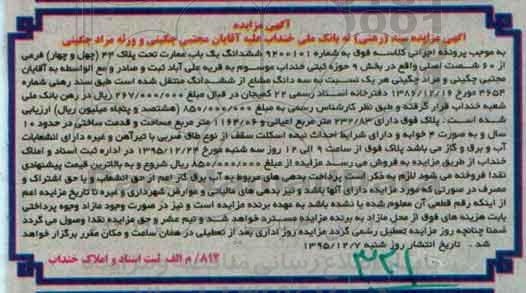 آگهی مزایده
آگهی مزایده سند (رهنی) له بانک ملی خنداب علیه آقایان مجتبی چگینی و ورثه مراد چگینی
به موجب پرونده اجرائی کلاسه فوق به شماره ۹۲۰۰۱۰۱ ششدانگ یک باب عمارت تحت پلاک ۴۴ (چهل و چهار) فرعی
از ۶۰ شصت اصلی واقع در بخش ۹ حوزه ثبتی خنداب موسوم به قریه علی آباد ثبت و صادر و مع الواسطه به آقایان
مجتبی چگینی و مراد چگینی هر یک نسبت به سه دانگ مشاع از ششدانگ منتقل شده است طبق سند رهنی شماره
۳۶۵۴ مورخ ۱۳۸۶/۱۲/۱۶ دفترخانه اسناد رسمی ۲۲ کمیجان در قبال مبلغ ۲۶۷/۰۰۰/۰۰۰ ریال در رهن بانک ملی
شعبه خنداب قرار گرفته و طبق نظر کارشناس رسمی به مبلغ ۸۵۰/۰۰۰/۰۰۰ (هشتصد و پنجاه میلیون ریال) ارزیابی
شده است. پلاک فوق دارای ۲۳۲/۸۳ متر مربع اعیانی و ۱۱۶۴/۰۶ متر مربع مساحت و قدمت ساختی در حدود ۱۰
سال و به صورت ۴ خوابه و دارای شرایط احداث نیمه اسکلت سقف از نوع طاق ضربی با تیرآهن و غیره دارای انشعابات
آب و برق و گاز می باشد پلاک فوق از ساعت ۹ الی ۱۲ روز سه شنبه مورخ ۱۳۹۵/۱۲/۲۴ در اداره ثبت اسناد و املاک
خنداب از طریق مزایده به فروش می رسد مزایده از مبلغ ۸۵۰/۰۰۰/۰۰۰ ریال شروع و به بالاترین قیمت پیشنهادی
نقدا فروخته می شود لازم به ذکر است پرداخت بدهی های مربوط به آب برق گاز اعم از حق انشعاب و یا حق اشتراک و
مصرف در صورتی که مورد مزایده دارای آنها باشد و نیز بدهی های مالیاتی و عوارض شهرداری و غیره تا تاریخ مزایده اعم
از اینکه رقم قطعی آن معلوم شده یا نشده باشد به عهده برنده مزایده است و نیز در صورت وجود مازاد وجوه پرداختی
بابت هزینه های فوق از محل مازاد به برنده مزایده مسترد خواهد شد و نیم عشر و حق مزایده نقدا وصول می گردد
ضمنا چنانچه روز مزایده تعطیل رسمی گردد مزایده روز اداری بعد از تعطیلی در همان ساعت و مکان مقرر برگزار خواهد
شد. تاریخ انتشار روز شنبه ۱۳۹۵/۱۲/۷
۸۱۲/ م الف. ثبت اسناد و املاک خنداب
۳۳۱